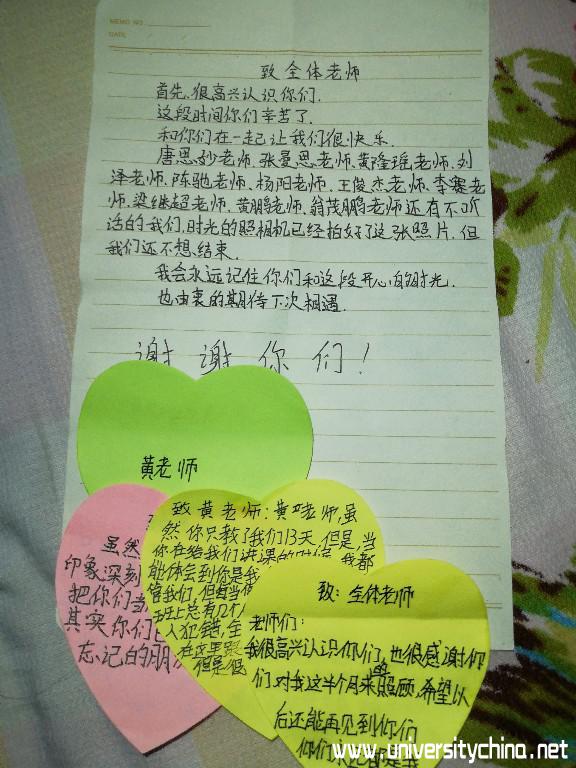 MEMO NO
DATE
致全体老师
首先,很高兴认识你们.
这段时间你们辛苦了.
和你们在一起让我们很快乐.
唐思妙老师、张曼恩老师、黄隆瑶老师、刘
泽老师、陈驰老师、杨阳老师、王俊杰老师、李骞老
师、梁继超老师、黄鹏老师、翁茂鹏老师还有不听
话的我们,时光的照相机已经拍好了这张照片,但
我们还不想结束.
我会永远记住你们和这段开心的时光.
也由衷的期待下次相遇.
谢谢你们!
黄老师
虽然
印象深刻
把你们当
其实你们
忘记的朋
致黄老师:黄老师,虽
然你只教了我们13天,但是,当
你在给我们讲课的时候,我都
能体会到你是我
管我们,但每当你
班上总有几个人
人犯错,全
在这里
但是很
致:全体老师
老师们:
我很高兴认识你们,也很感谢你
们对我这半个月来的照顾,希望以
后还能再见到你们
www.universitychina.net